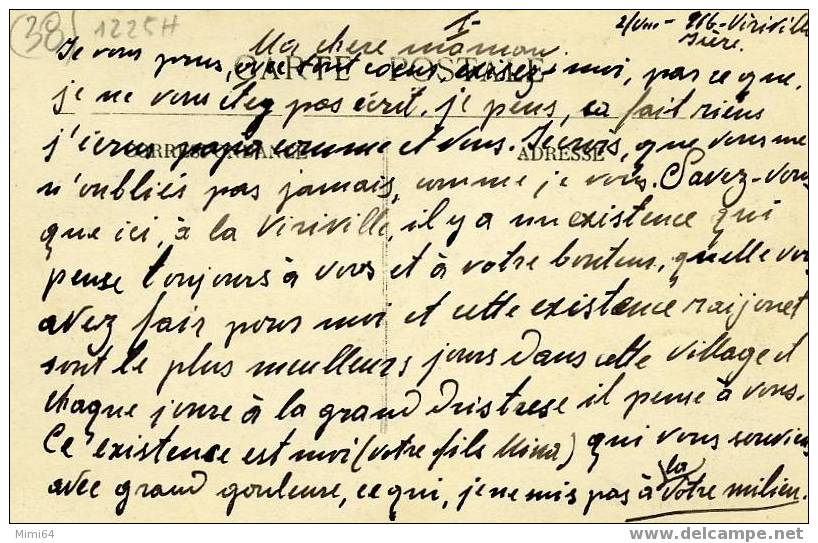 (38) 1225H
1-
2/VIII - 916 - Viriville
Isère.
Ma chere maman.
CARTE POSTALE
Je vous prus, avec tout coeur, excisez-moi, parceque,
je ne vous étez pas écrit. je pens, ca fait riens
CORRESPONDANCE
ADRESSE
j'écrus comme et vous. Jecris, que vous me
n'oubliés pas jamais, comme je vous. Savez-vous
que ici, à la Viriville, il y a un existence qui
pense toujours à vous et à votre bonteur, quelle vous
avez fair pour moi et cette existence
sont le plus meulleurs jours dans cette village et
chaque joure à la grand dristrese il pense à vous.
Ce existence est moi (votre fils Mina) qui vous souviens
avec grand gouleure, ce qui, je ne mis pas à la votre milieu.
Mimi64
delcampe.net